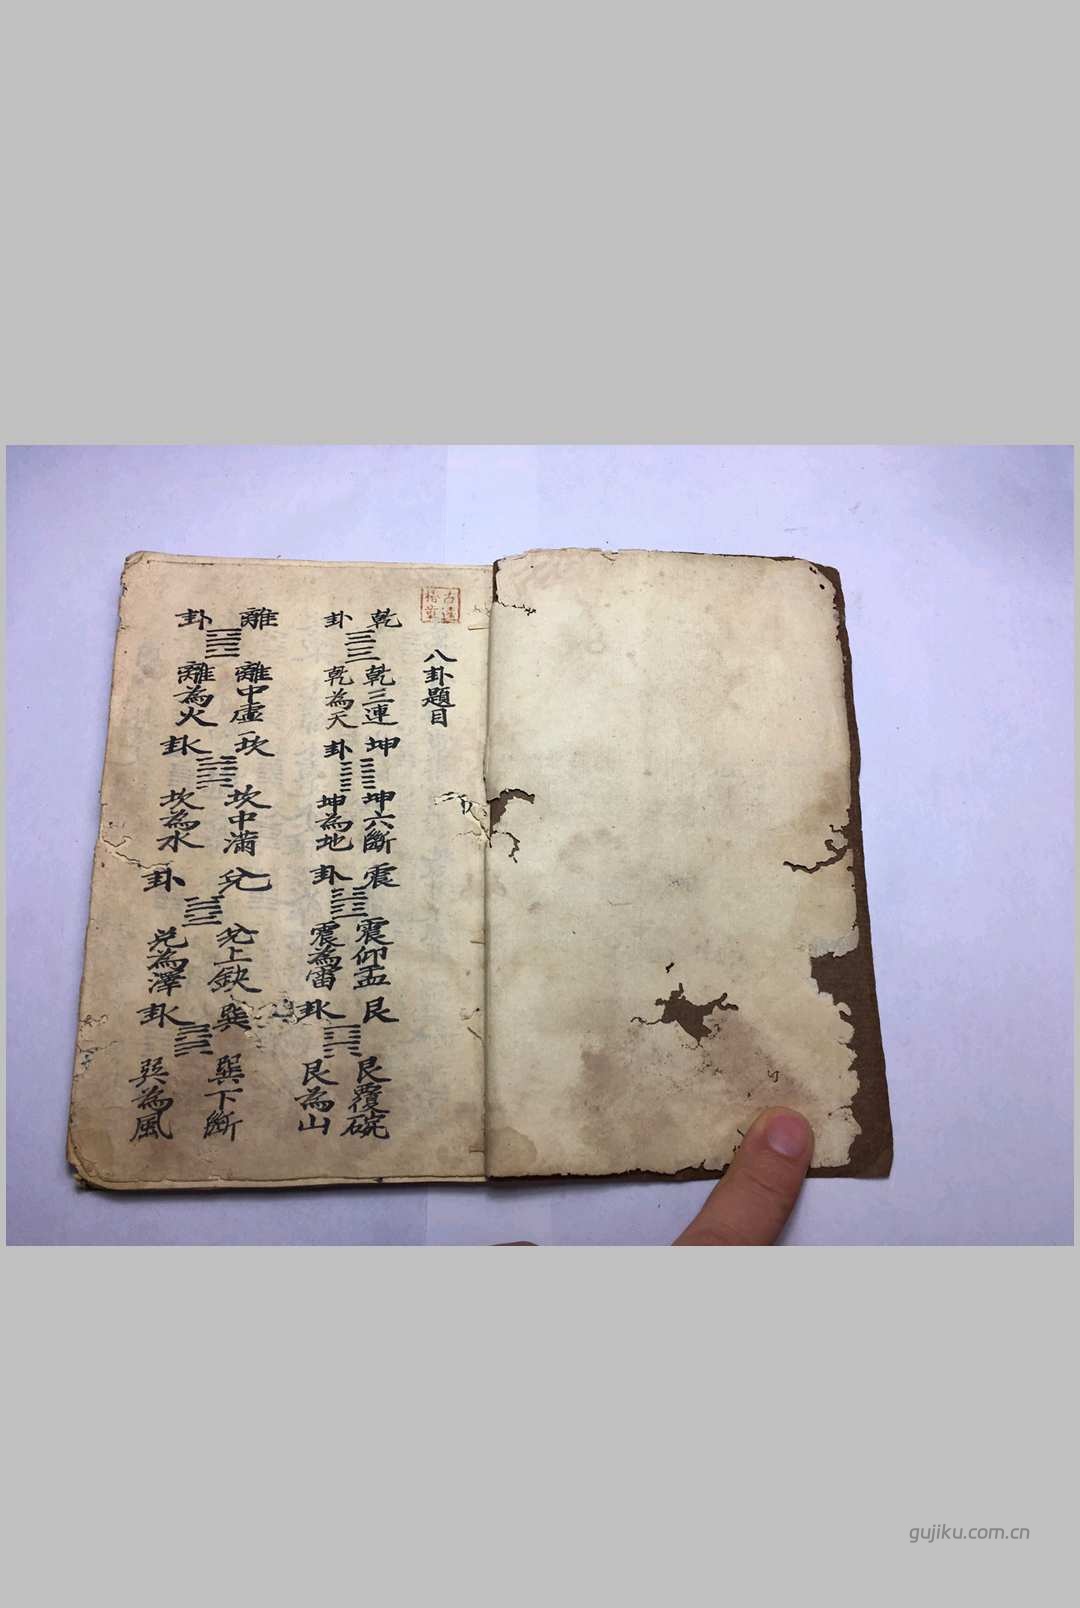 八卦題目
乾卦
乾三連
乾為天
坤卦
坤六斷
坤為地
震卦
震仰盂
震為雷
艮卦
艮覆碗
艮為山
離卦
離中虛
離為火
坎卦
坎中滿
坎為水
兌卦
兌上缺
兌為澤
巽卦
巽下斷
巽為風
gujiku.com.cn